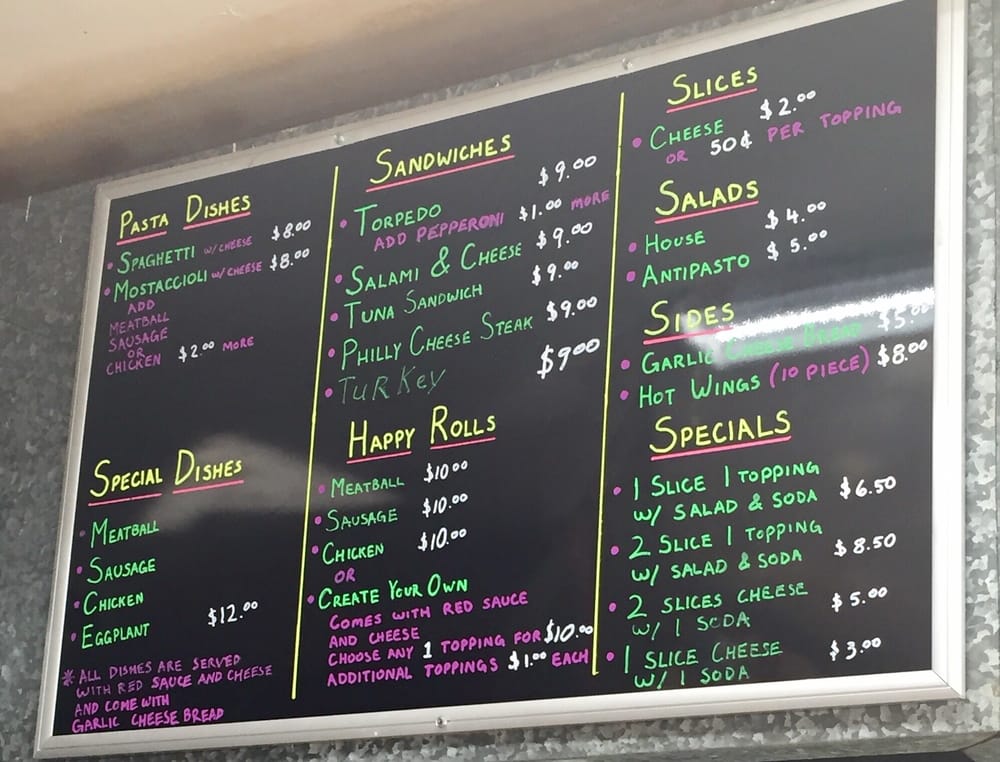 PASTA DISHES
• SPAGHETTI W/CHEESE $8.00
• MOSTACCIOLI W/CHEESE $8.00
ADD
MEATBALL
SAUSAGE
OR
CHICKEN $2.00 MORE
SPECIAL DISHES
• MEATBALL
• SAUSAGE
• CHICKEN
• EGGPLANT $12.00
* ALL DISHES ARE SERVED
WITH RED SAUCE AND CHEESE
AND COME WITH
GARLIC CHEESE BREAD
SANDWICHES
• TORPEDO $9.00
ADD PEPPERONI $1.00 MORE
• SALAMI & CHEESE $9.00
• TUNA SANDWICH $9.00
• PHILLY CHEESE STEAK $9.00
• TURKEY $9.00
HAPPY ROLLS
• MEATBALL $10.00
• SAUSAGE $10.00
• CHICKEN $10.00
OR
• CREATE YOUR OWN
COMES WITH RED SAUCE
AND CHEESE
CHOOSE ANY 1 TOPPING FOR $10.00
ADDITIONAL TOPPINGS $1.00 EACH
SLICES
• CHEESE $2.00
OR 50¢ PER TOPPING
SALADS
• HOUSE $4.00
• ANTIPASTO $5.00
SIDES
• GARLIC CHEESE BREAD $5.00
• HOT WINGS (10 PIECE) $8.00
SPECIALS
• 1 SLICE 1 TOPPING
W/ SALAD & SODA $6.50
• 2 SLICE 1 TOPPING
W/ SALAD & SODA $8.50
• 2 SLICES CHEESE
W/ 1 SODA $5.00
• 1 SLICE CHEESE
W/ 1 SODA $3.00